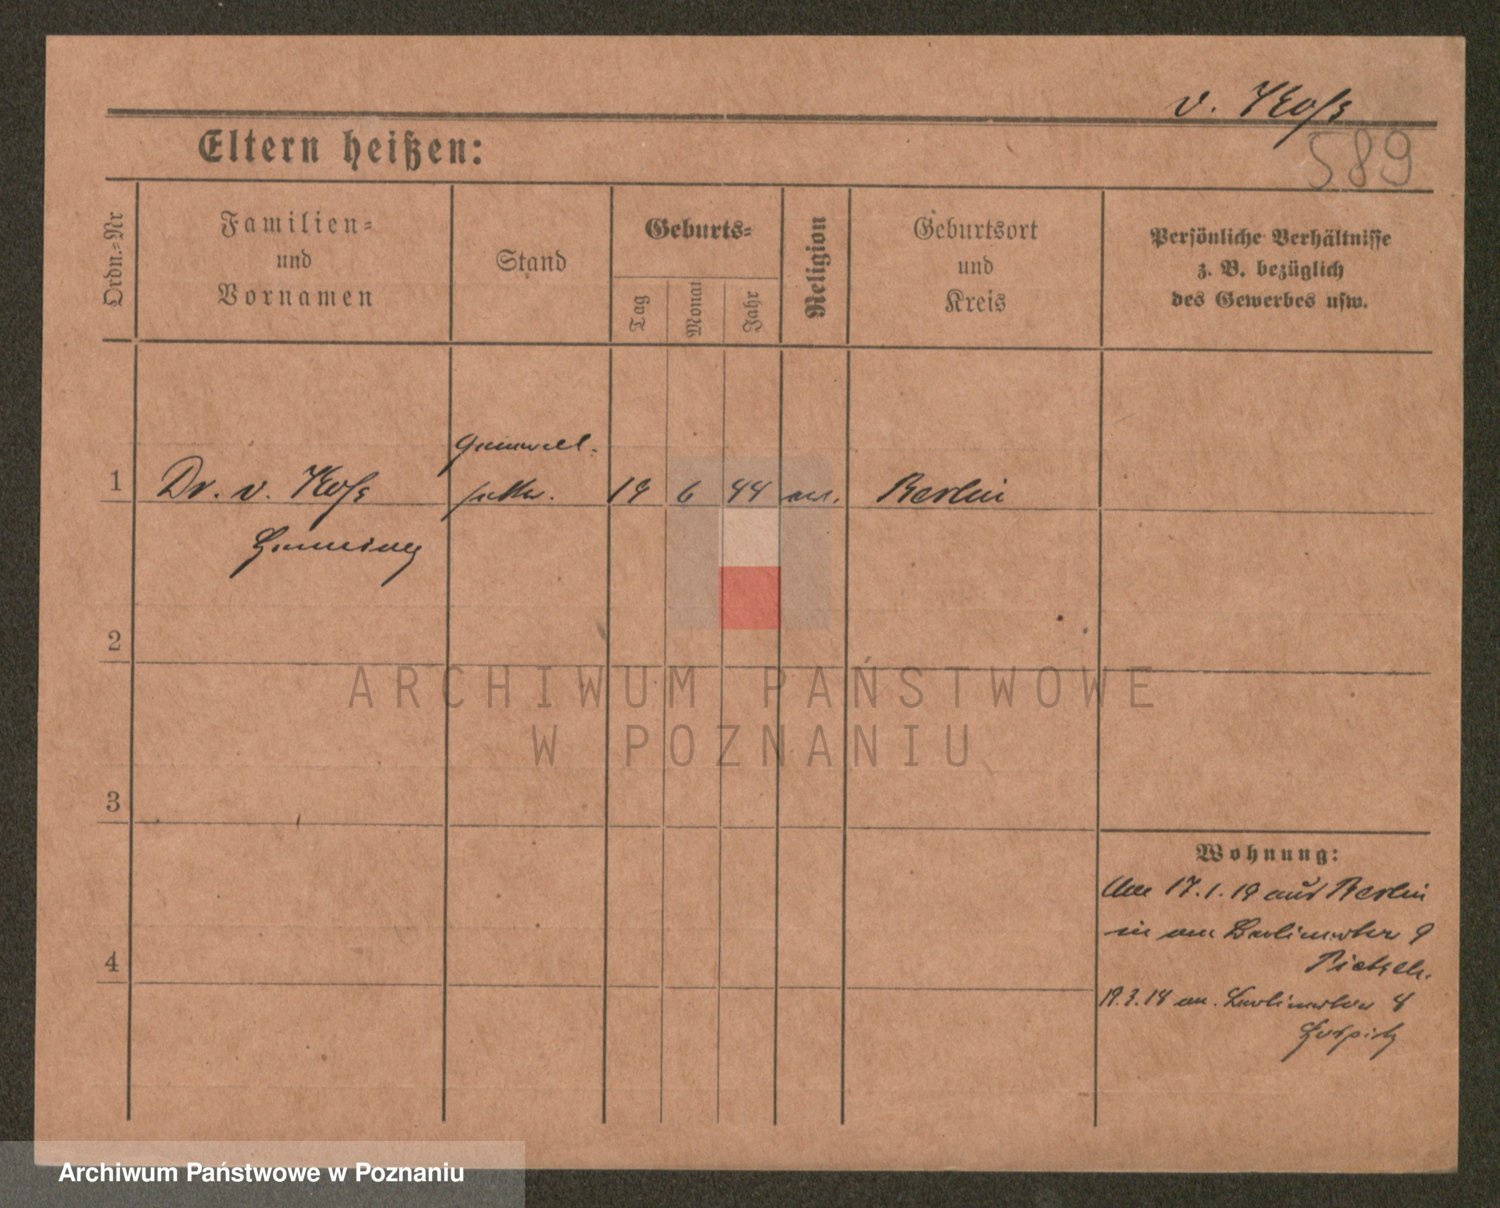 v. Kose
589
Eltern heißen:
Ordn.=Nr
Familien=
und
Vornamen
Stand
Geburts=
Tag
Monat
Jahr
Religion
Geburtsort
und
Kreis
Persönliche Verhältnisse
z. B. bezüglich
des Gewerbes usw.
1 Dr. v. 19 6 44 Berlin
Henning
2
3
4
Wohnung:
17.1.19 aus Berlin
in am Berlinertor 9
Pietsch.
19.3.18 am Berlinertor 8
Hospitz
ARCHIWUM PAŃSTWOWE
W POZNANIU
Archiwum Państwowe w Poznaniu